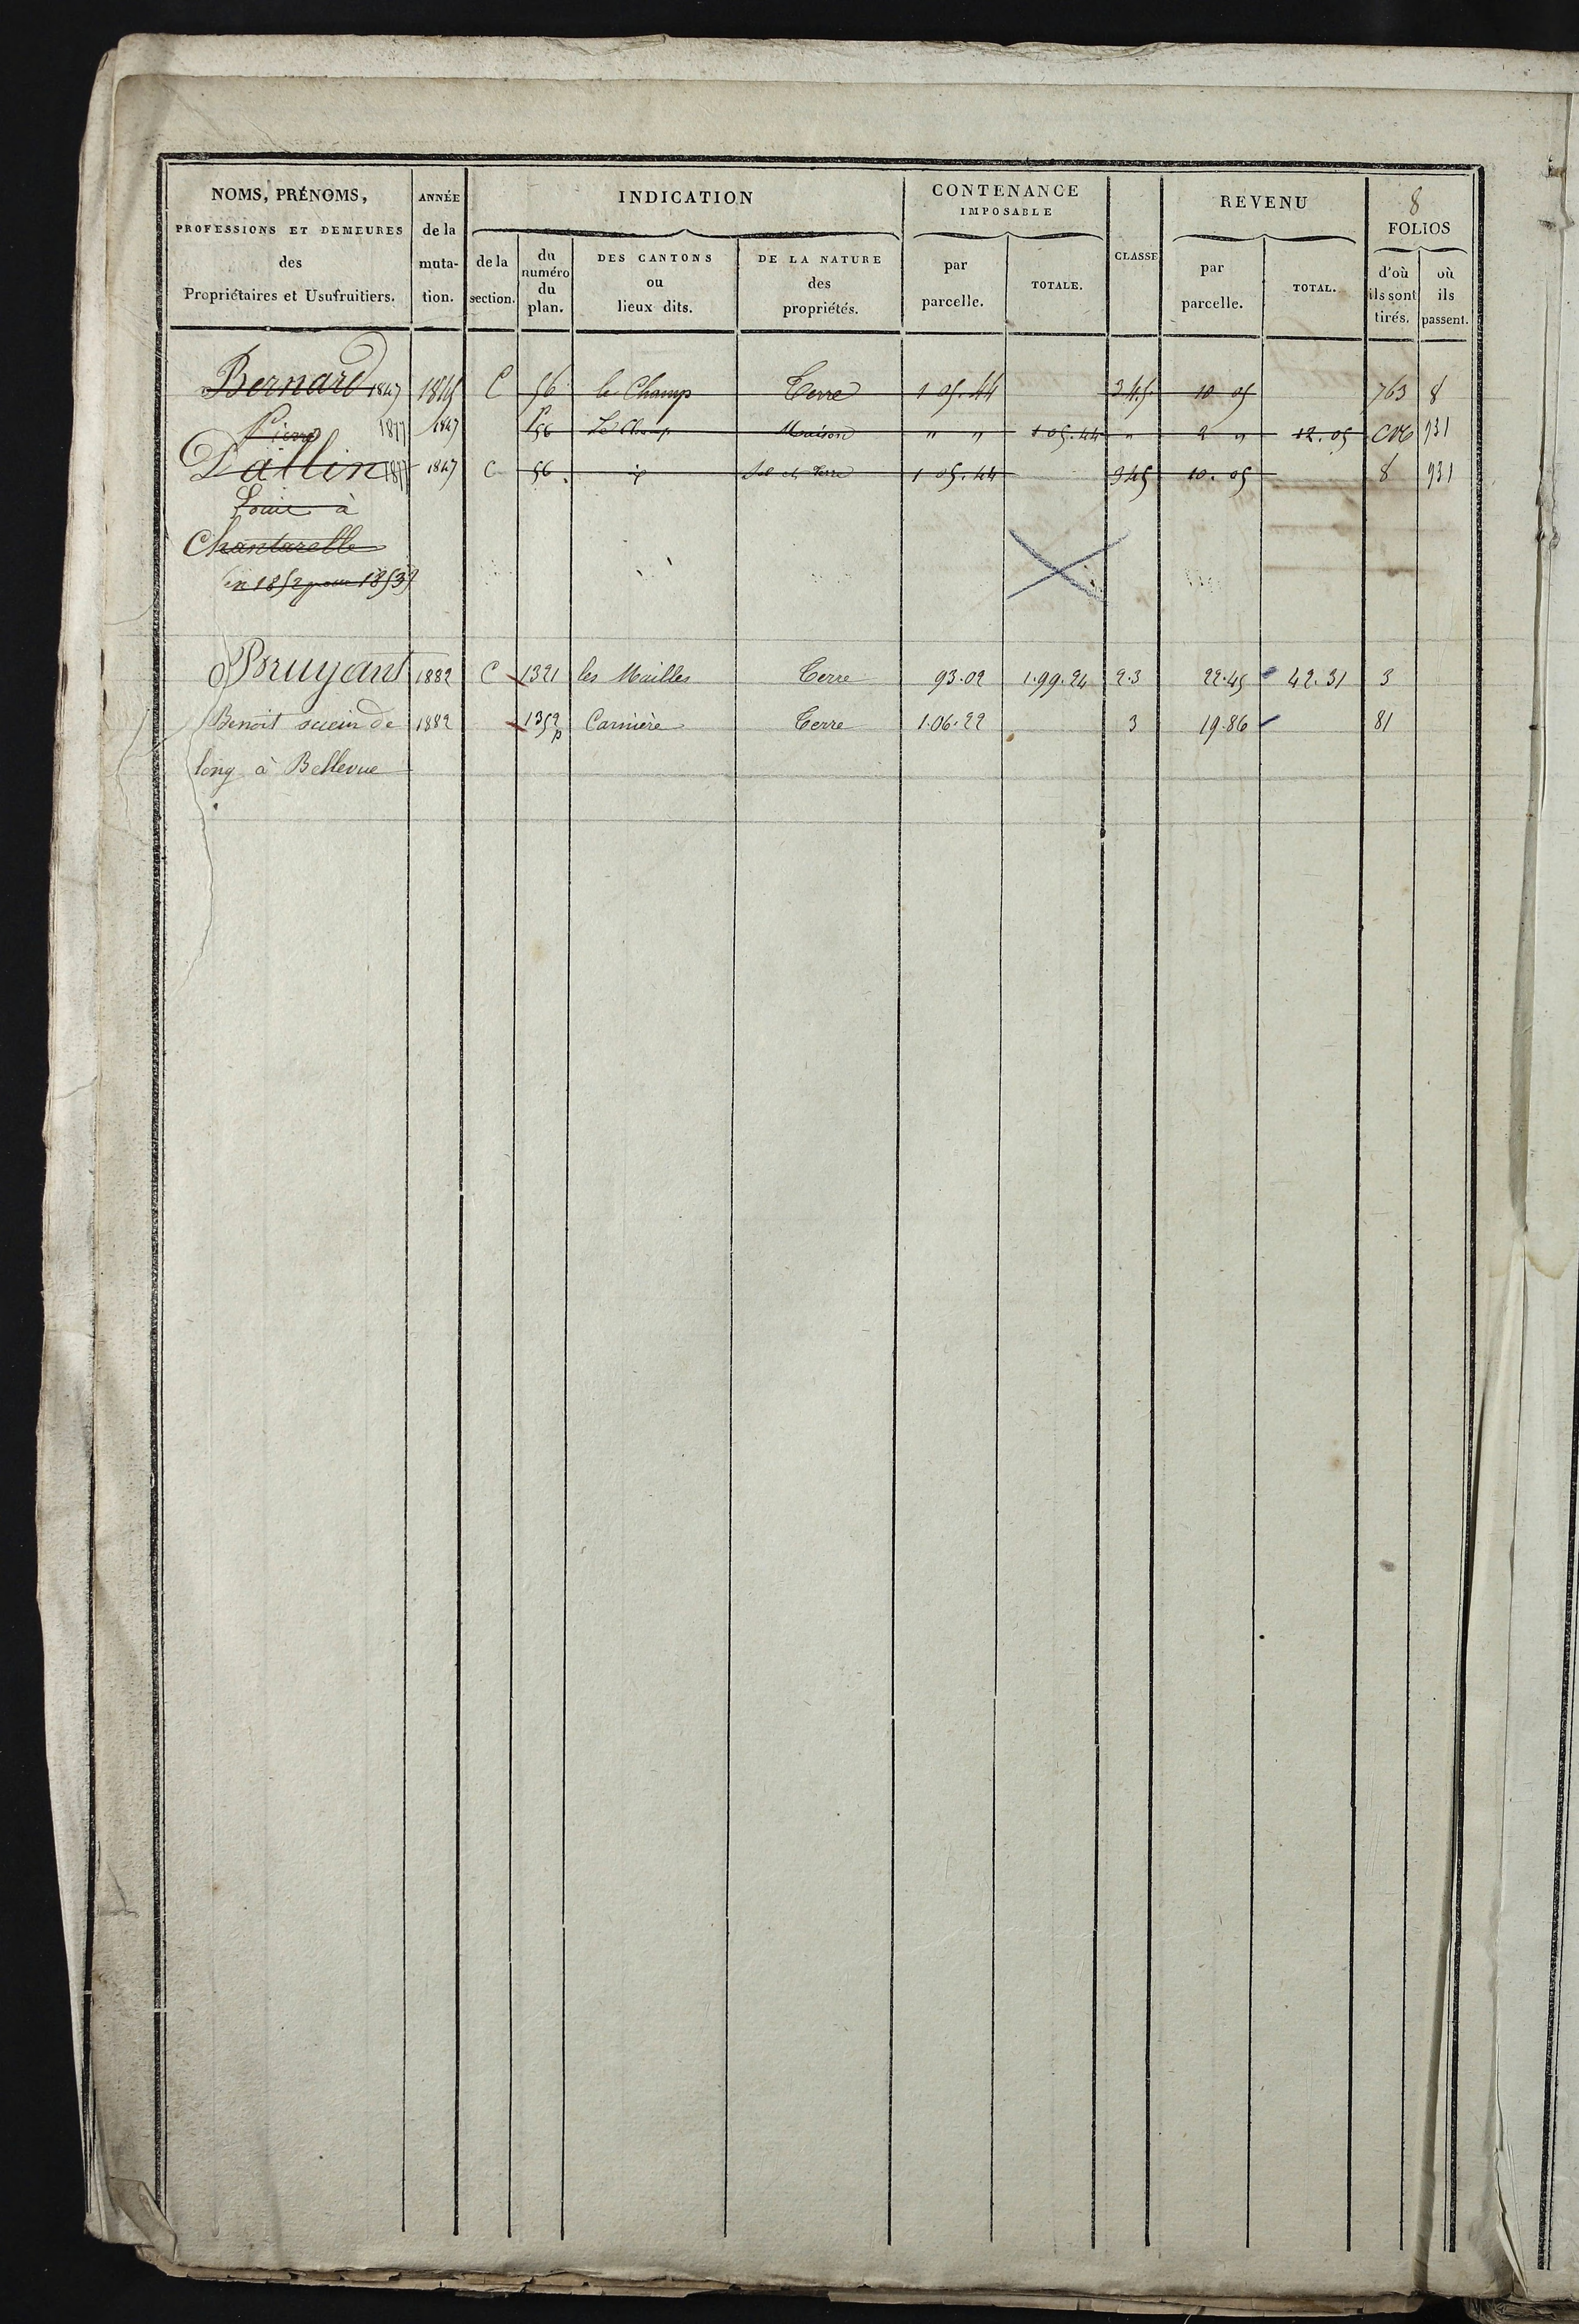 8
NOMS, PRÉNOMS, PROFESSIONS ET DEMEURES des Propriétaires et Usufruitiers.
ANNÉE de la muta- tion.
INDICATION
de la section.
du numéro du plan.
DES CANTONS ou lieux dits.
DE LA NATURE des propriétés.
CONTENANCE IMPOSABLE
par parcelle.
TOTALE.
CLASSE
REVENU
par parcelle.
TOTAL.
FOLIOS
d'où ils sont tirés.
où ils passent.
Bernard 1847 1845 C 56 le Champ Terre 1 05.44 345 10 05 763 8
Pierre 1877 1847 P56 Le Champ Maison " " 1 05.44 " 2 " 12.05 931
Dallin 1877 1847 C 56 Sol et Terre 1 05.44 345 10.05 8 931
Louis à
Chantarelle
en 1852 pour 1853
Bruyant 1882 C 1321 les Mailles Terre 93.02 1.99.24 2.3 22.45 42.31 3
Benoit de 1882 1352p Carnière Terre 1.06.22 3 19.86 81
long à Bellevue